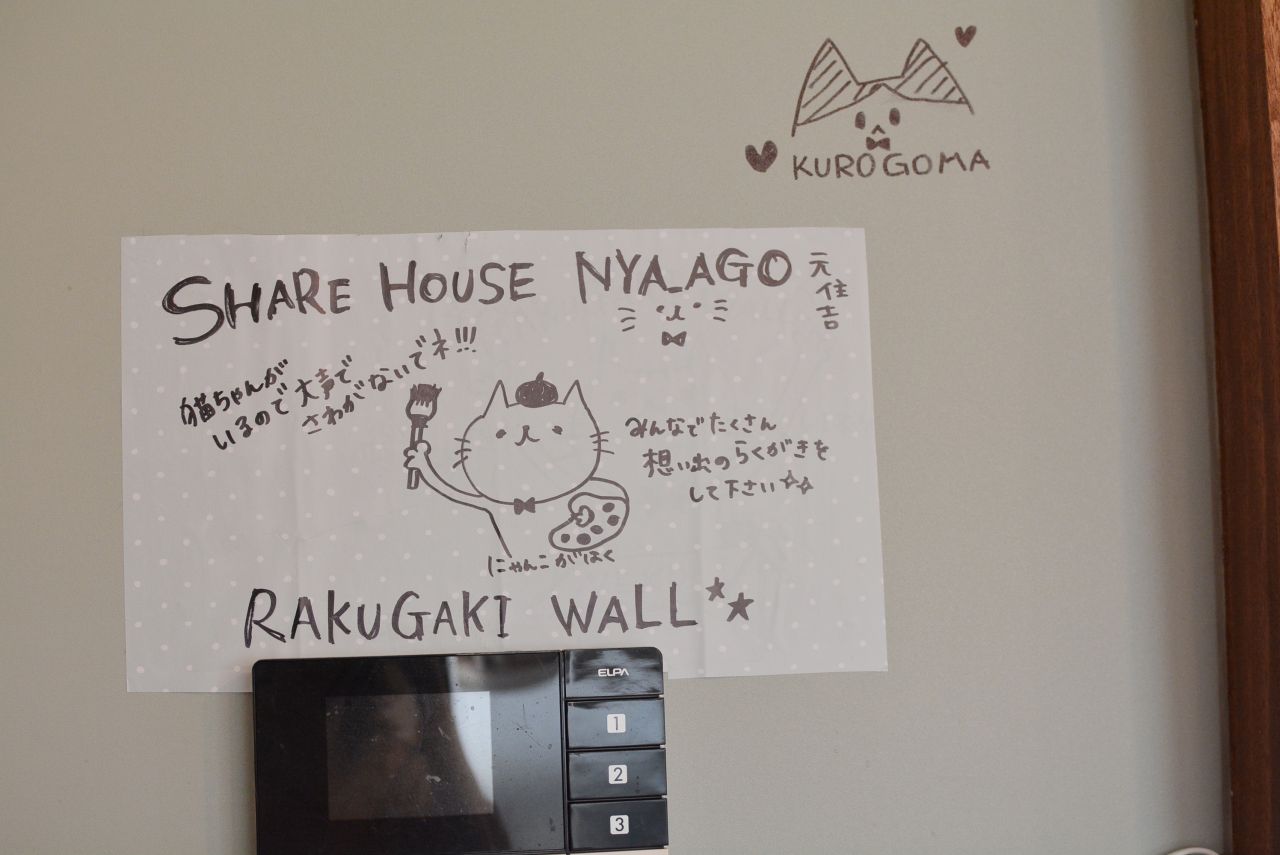 KUROGOMA
SHARE HOUSE NYA_AGO
元住吉
猫ちゃんが
いるので大声で
さわがないでネ!!!
みんなでたくさん
想い出のらくがきを
して下さい☆☆
にゃんこがはく
RAKUGAKI WALL★★
ELPA
1
2
3